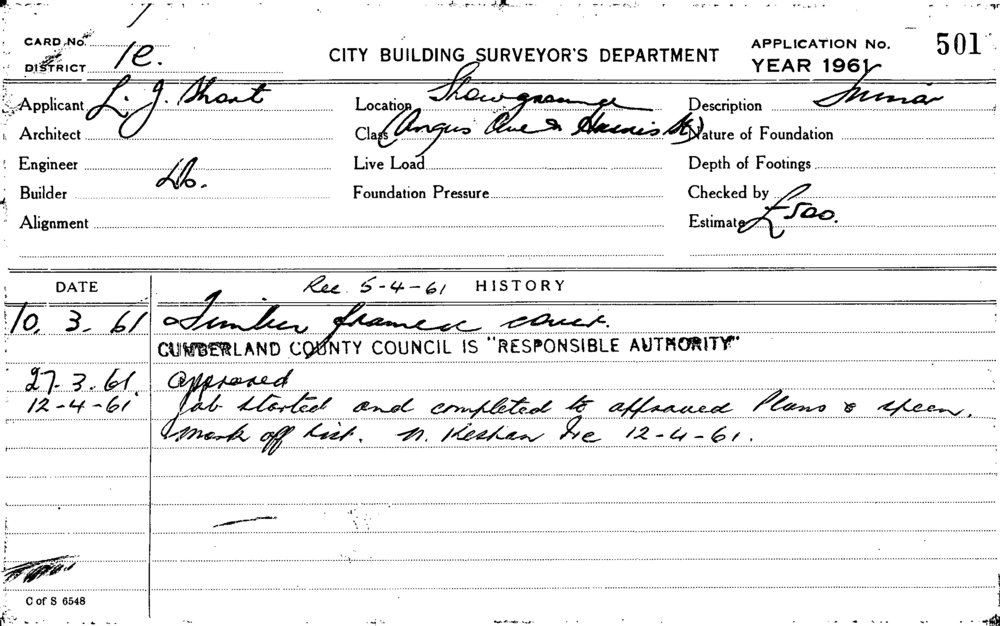 CARD No.
DISTRICT 1e.
CITY BUILDING SURVEYOR'S DEPARTMENT
APPLICATION No. 501
YEAR 1961
Applicant L. J. Short
Location Showgrounds
Description Minor
Architect
Class (Angus Ave & Harris St)
Nature of Foundation
Engineer
Live Load
Depth of Footings
Builder Do.
Foundation Pressure
Checked by
Alignment
Estimate £500.
DATE
Rec 5-4-61 HISTORY
10. 3. 61 Timber framed cover.
CUMBERLAND COUNTY COUNCIL IS "RESPONSIBLE AUTHORITY"
27. 3. 61. Approved
12-4-61. Job started and completed to approved Plans & specn.
Mark off list. N. 12-4-61.
C of S 6548